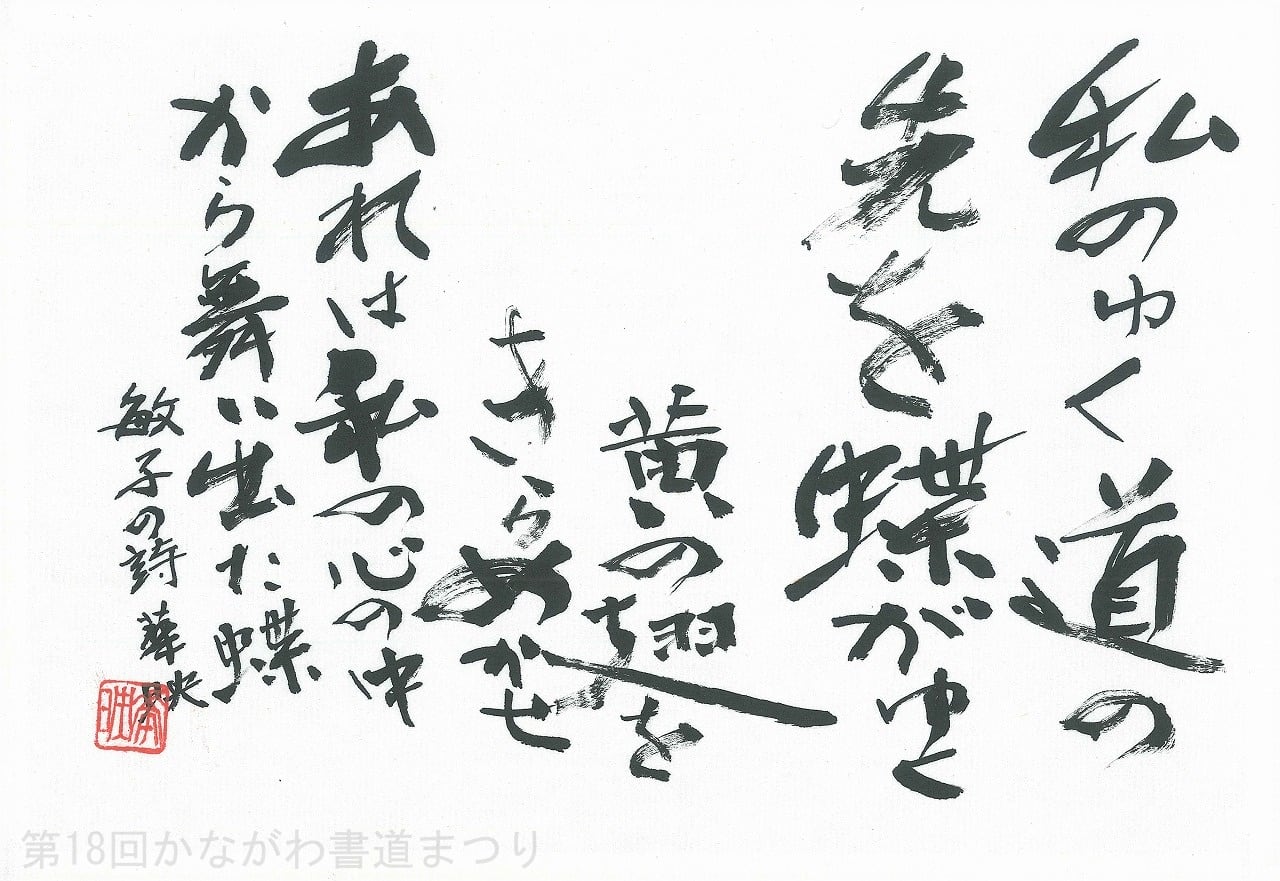 私のゆく道の
先を蝶がゆく
黄いの翅を
きらめかせ
あれは私の心の中
から舞い出た蝶
敏子の詩 華映
第18回かながわ書道まつり